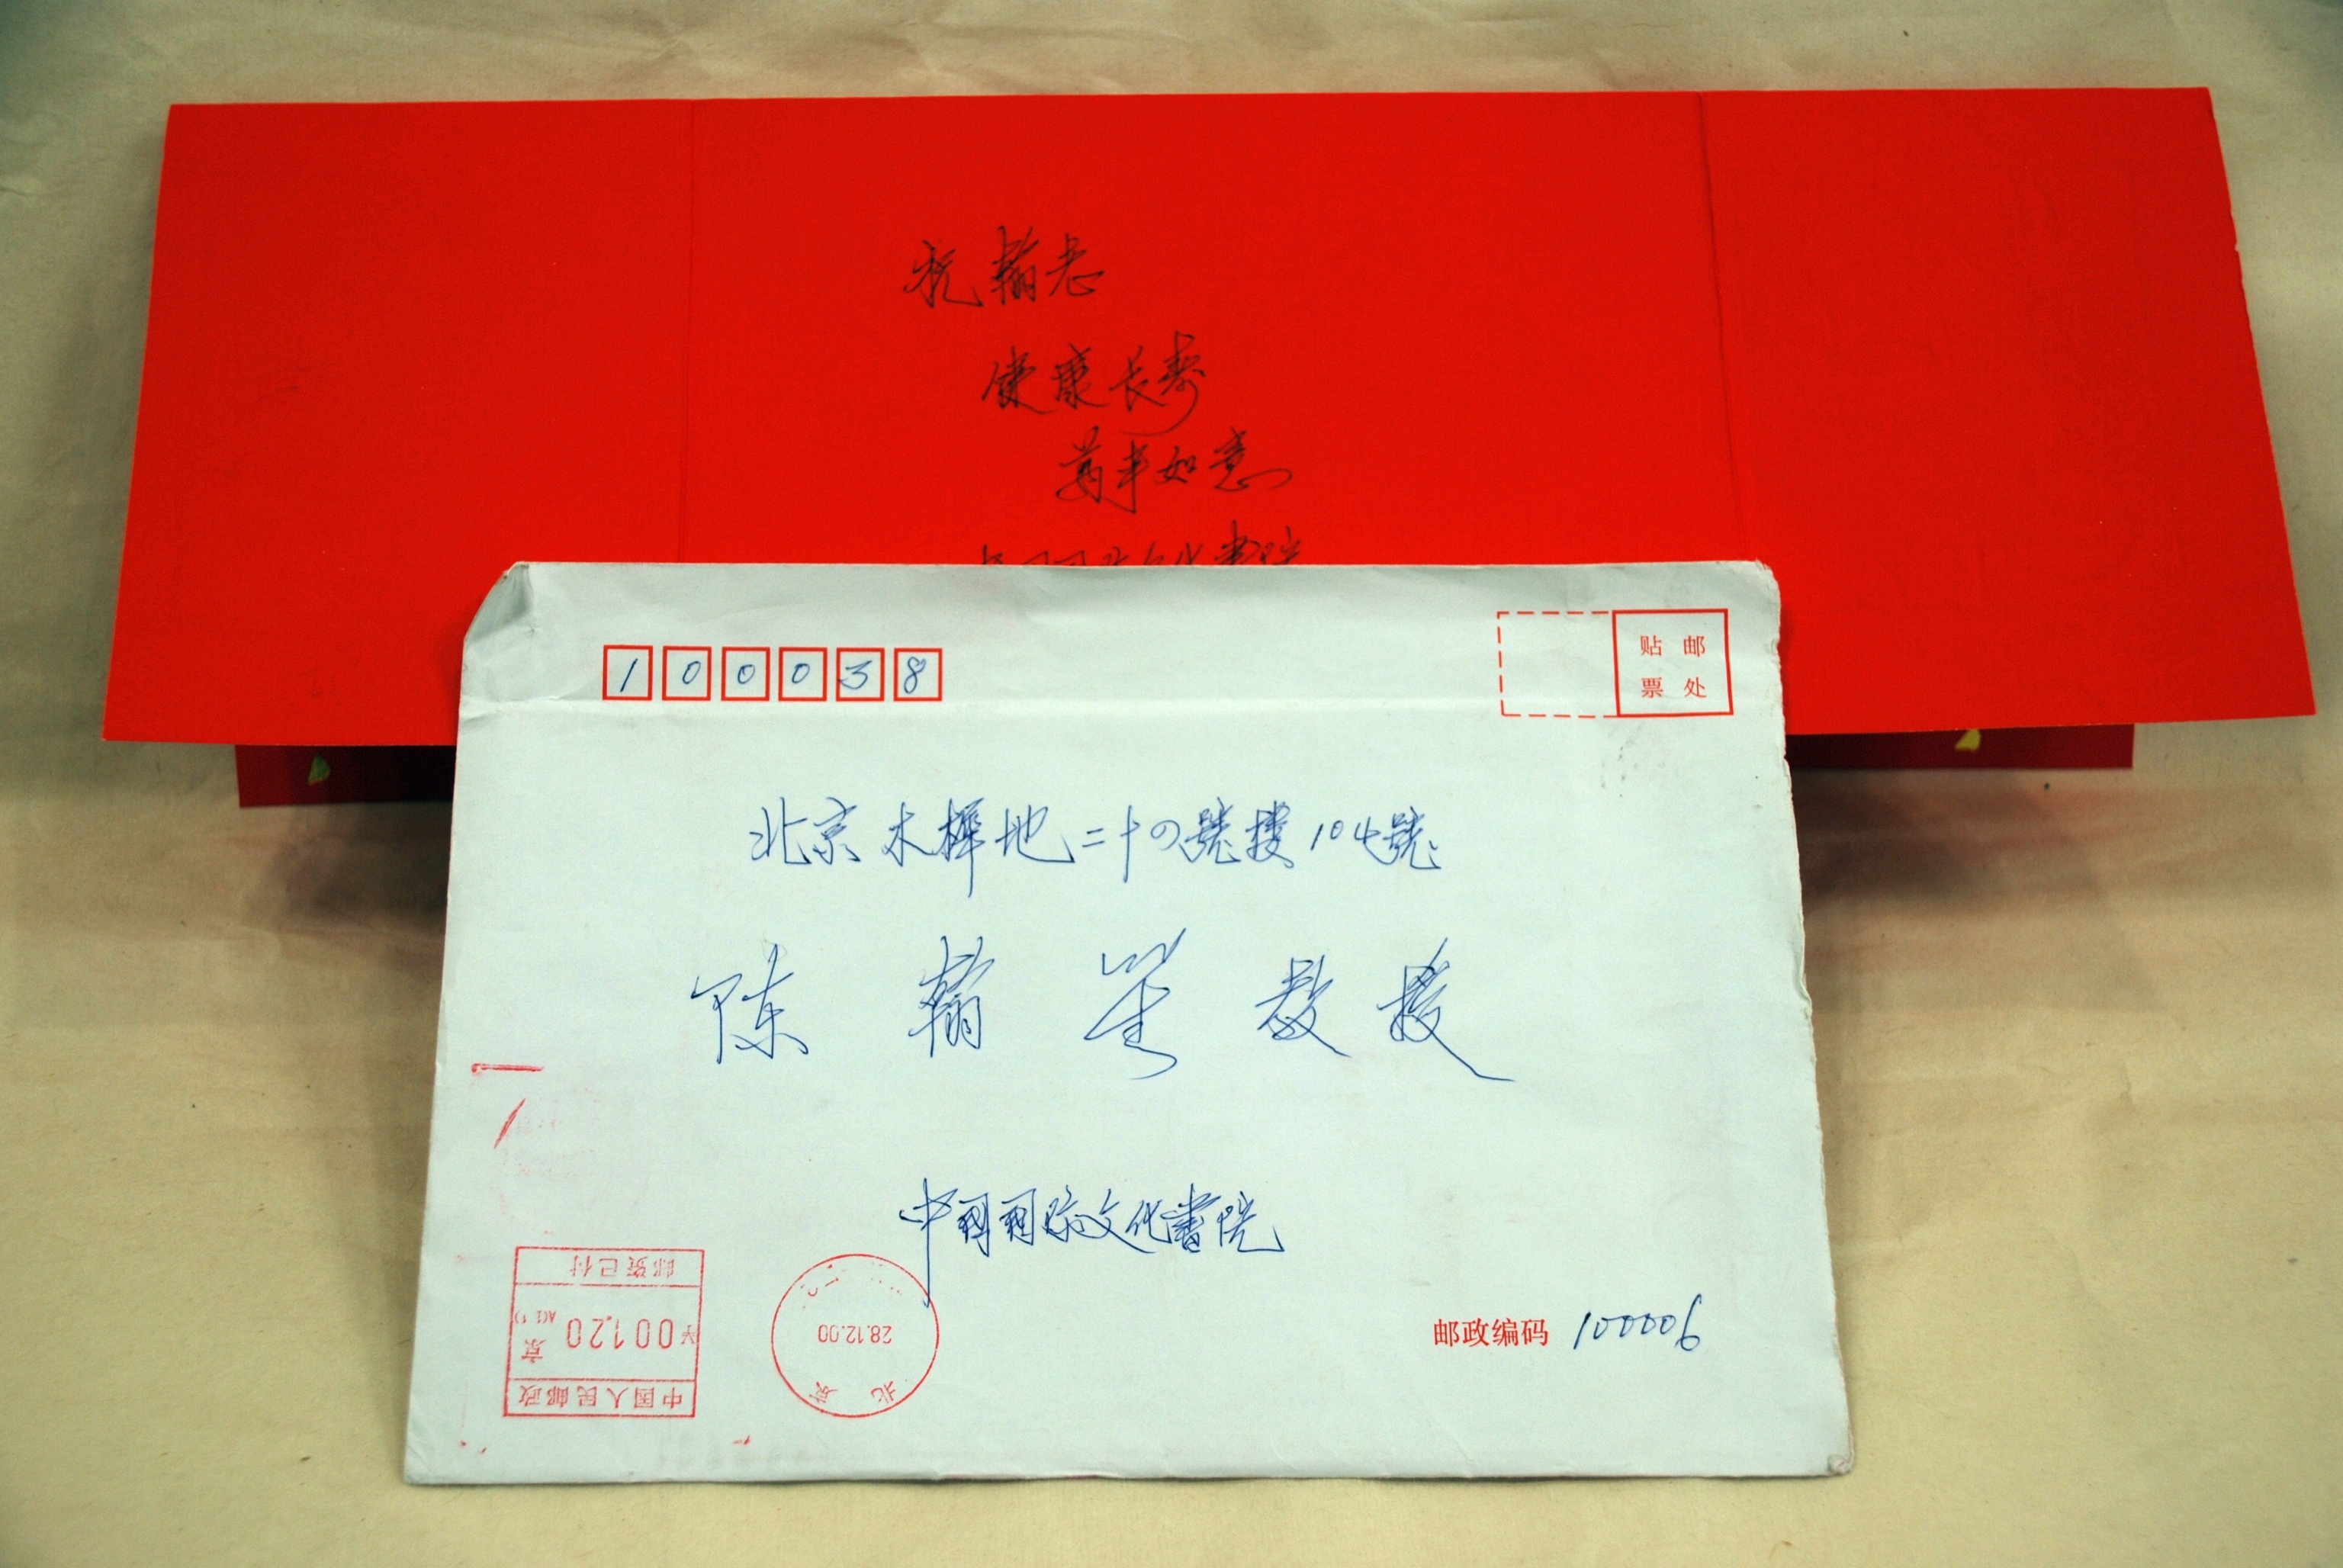 祝翰老
健康长寿
万事如意
中国国际文化書院
100038
贴邮
票处
北京木樨地二十四號楼104號
陈翰笙教授
中国国际文化書院
邮资已付
¥00120
京
中国人民邮政
28.12.00
北京
邮政编码 100006